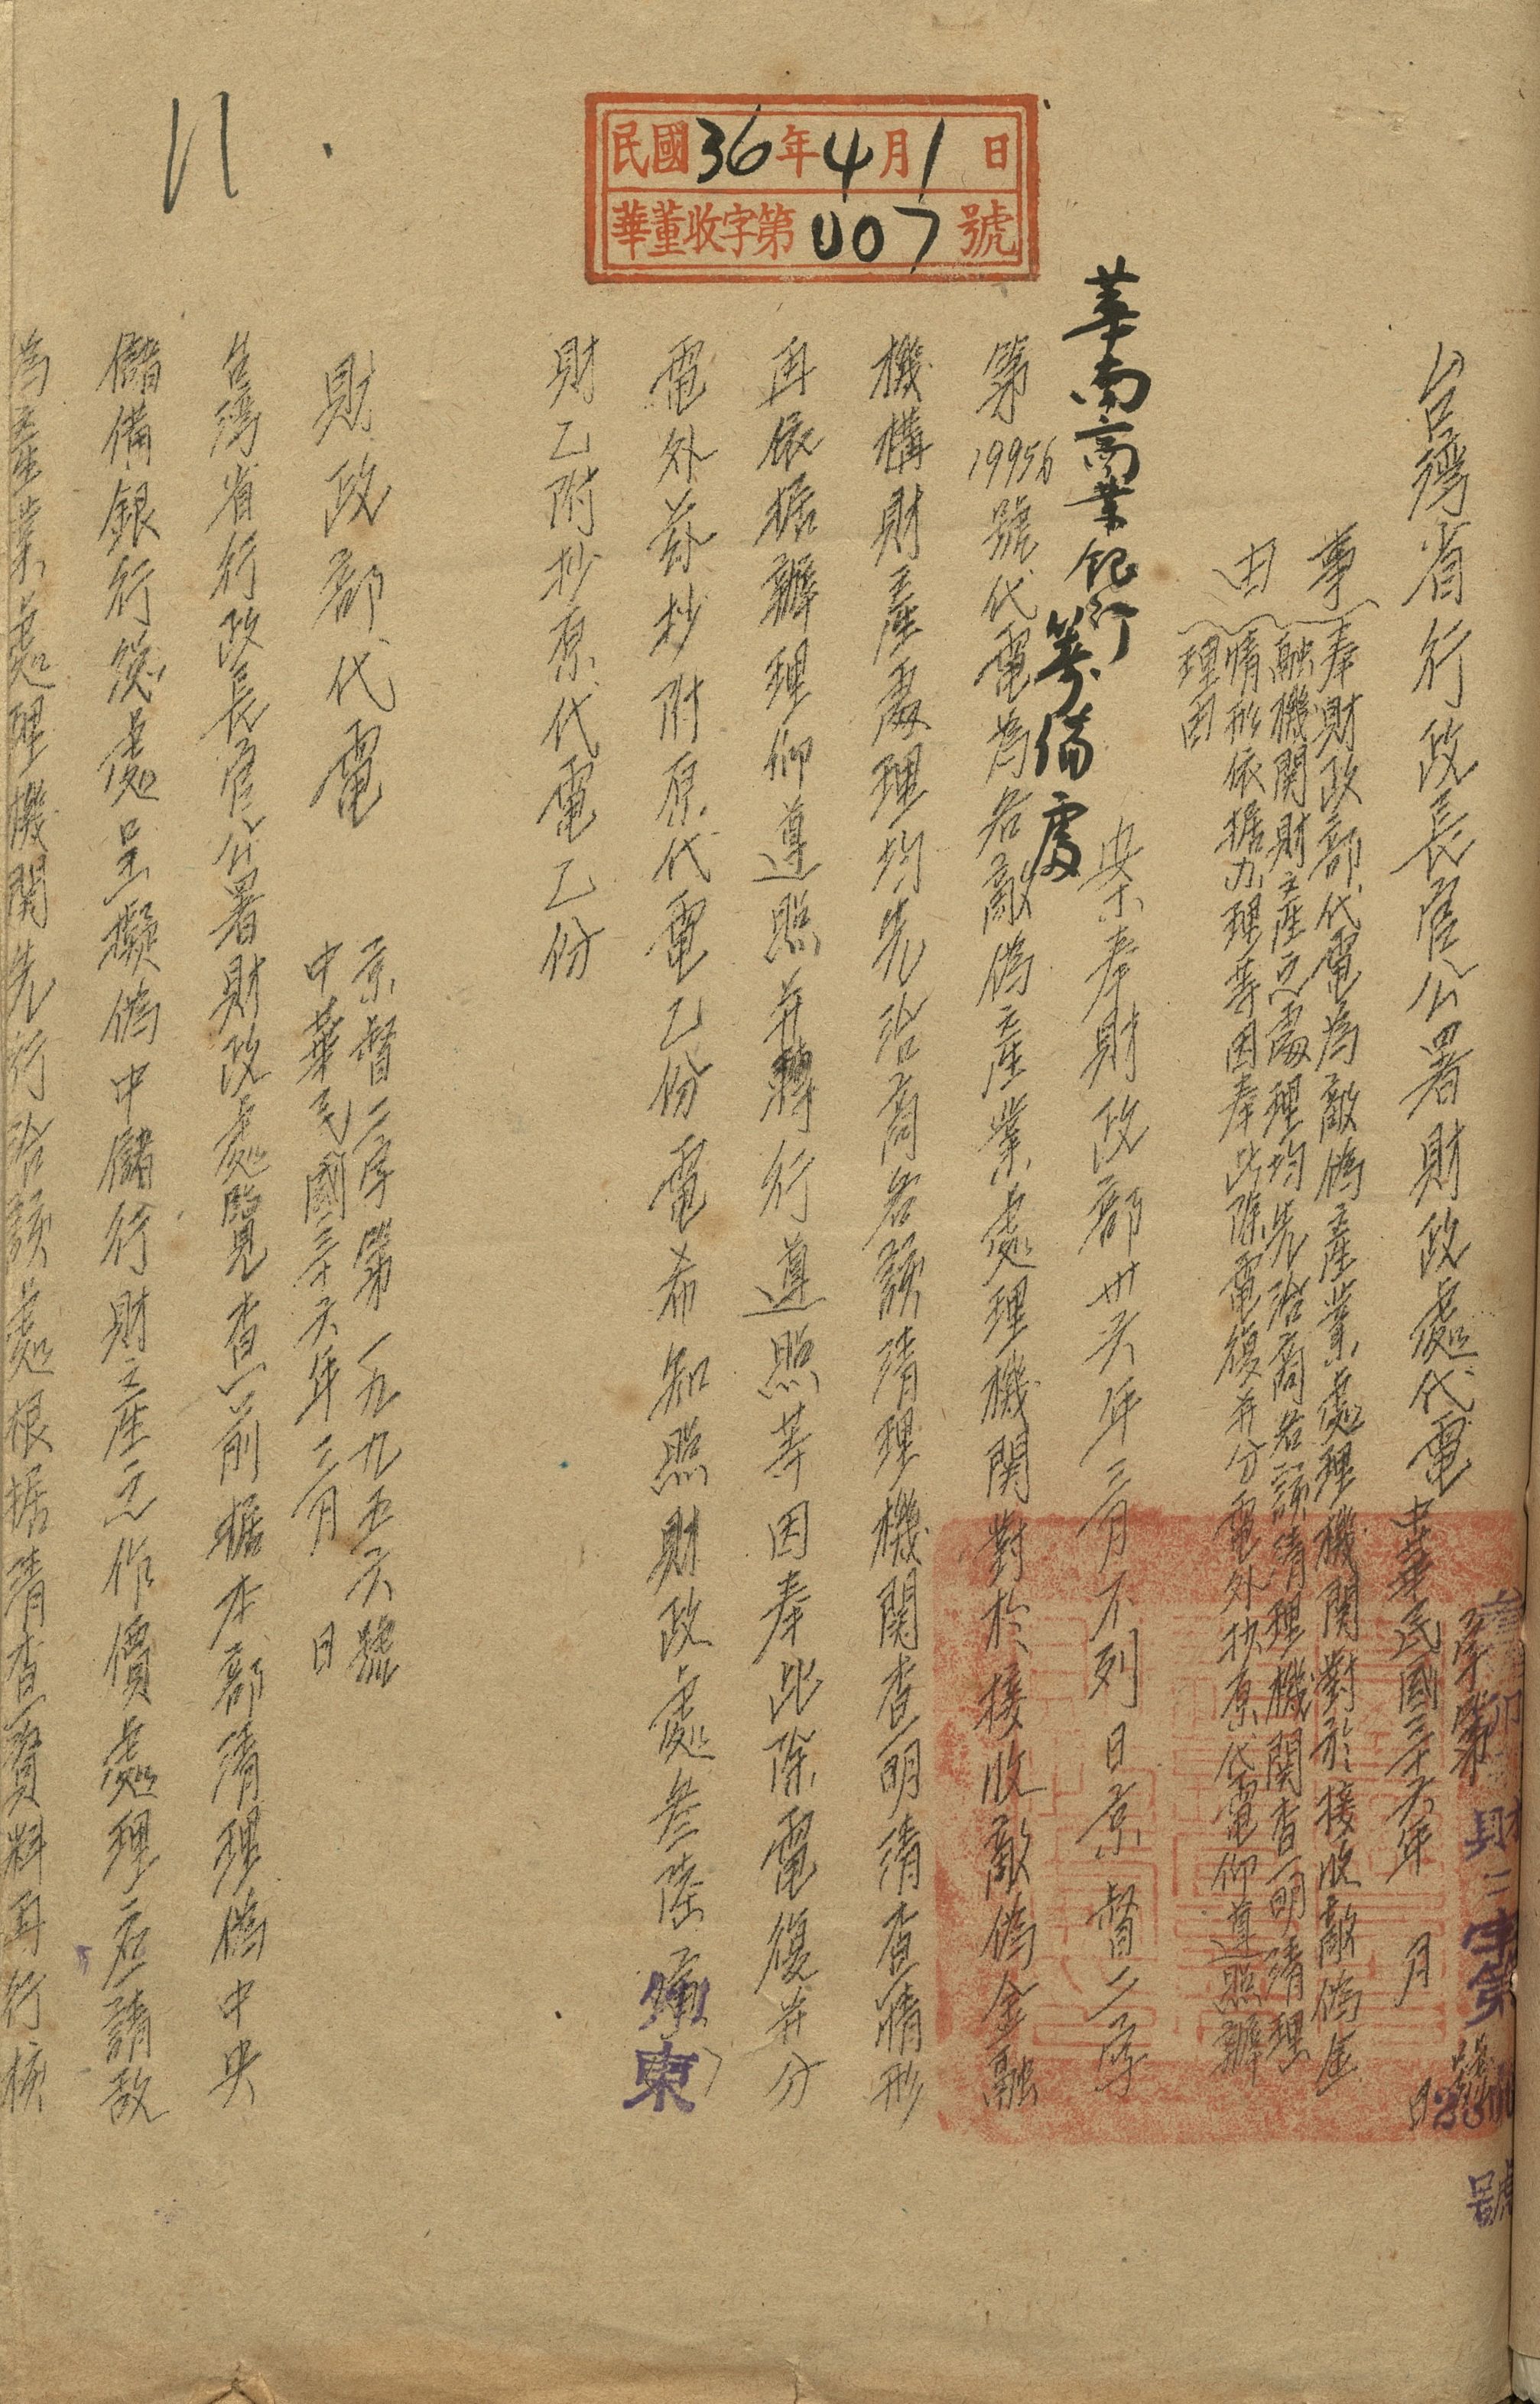 民國36年4月1日
華董收字第007號
台灣省行政長官公署財政處代電
中華民國三十六年 月 日
字第 號
財二字第
號
事由
奉財政部代電為敵偽產業處理機關對於接收敵偽金
融機關財產之處理均先洽商各該清理機關查明清理
情形依據办理等因奉此除電復并分電外抄原代電仰遵照辦
理由
華南商業銀行籌備處
案奉財政部卅六年三月不列日京督二字
第19956號代電為各敵偽產業處理機關對於接收敵偽金融
機構財產處理均先洽商各該清理機關查明清查情形
再依据辦理仰遵照并轉行遵照等因奉此除電復并分
電外茲抄附原代電乙份電希知照財政處叁陸
東
財乙附抄原代電乙份
財政部代電
京督二字第一九九五六號
中華民國三十六年三月 日
台灣省行政長官公署財政處覽查前据本部清理偽中央
儲備銀行 處呈擬偽中儲行財產之作價處理
為產業處理機關先行洽該處根据清查資料再行核
11